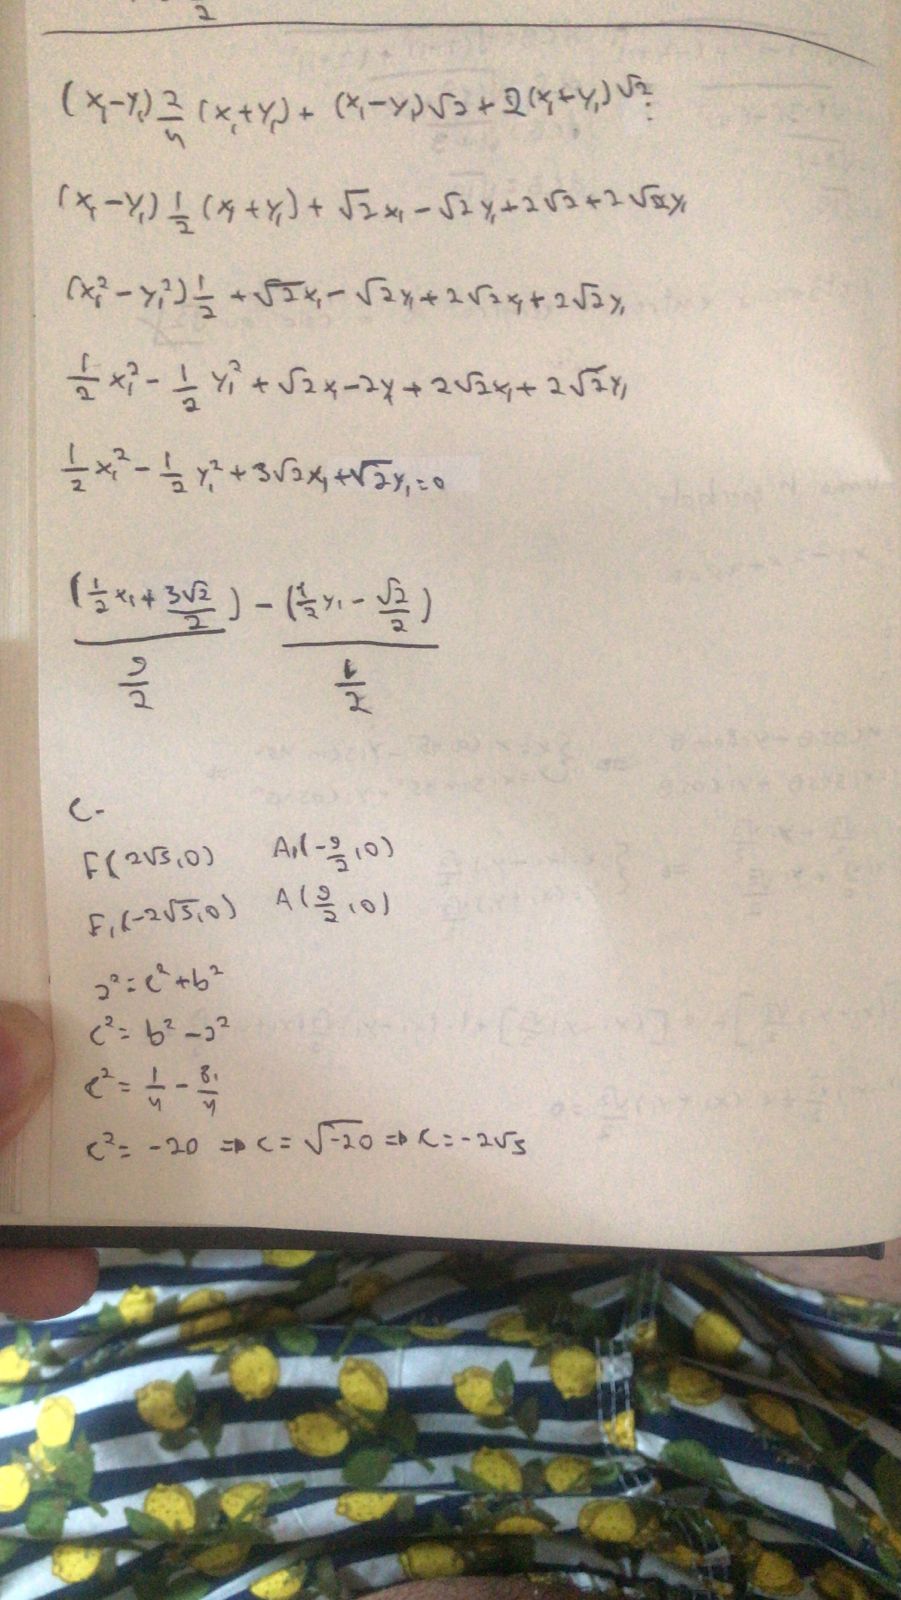 2
(x₁-y₁) 2/4 (x₁+y₁) + (x₁-y₁)√2 + 2(x₁+y₁)√2 :
(x₁-y₁) 1/2 (x₁+y₁) + √2x₁ - √2y₁ + 2√2 + 2√2y₁
(x₁²-y₁²) 1/2 + √2x₁ - √2y₁ + 2√2x₁ + 2√2y₁
1/2 x₁² - 1/2 y₁² + √2x₁ - 2y + 2√2x₁ + 2√2y₁
1/2 x₁² - 1/2 y₁² + 3√2x₁ + √2y₁ = 0
(1/2 x₁ + 3√2/2) - (1/2 y₁ - √2/2)
9/2 1/2
C-
F(2√5,0) A₁(-9/2,0)
F₁(-2√5,0) A(9/2,0)
a² = c² + b²
c² = b² - a²
c² = 1/4 - 81/4
c² = -20 => c = √-20 => c = -2√5